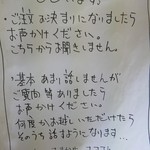 ・ご注文お決まりになりましたら
お声かけください。
こちらからお聞きしません。
・基本あまり話しませんが
ご質問等ありましたら
お声かけください。
何度かお越しいただけたら
そのうち話すようになります…